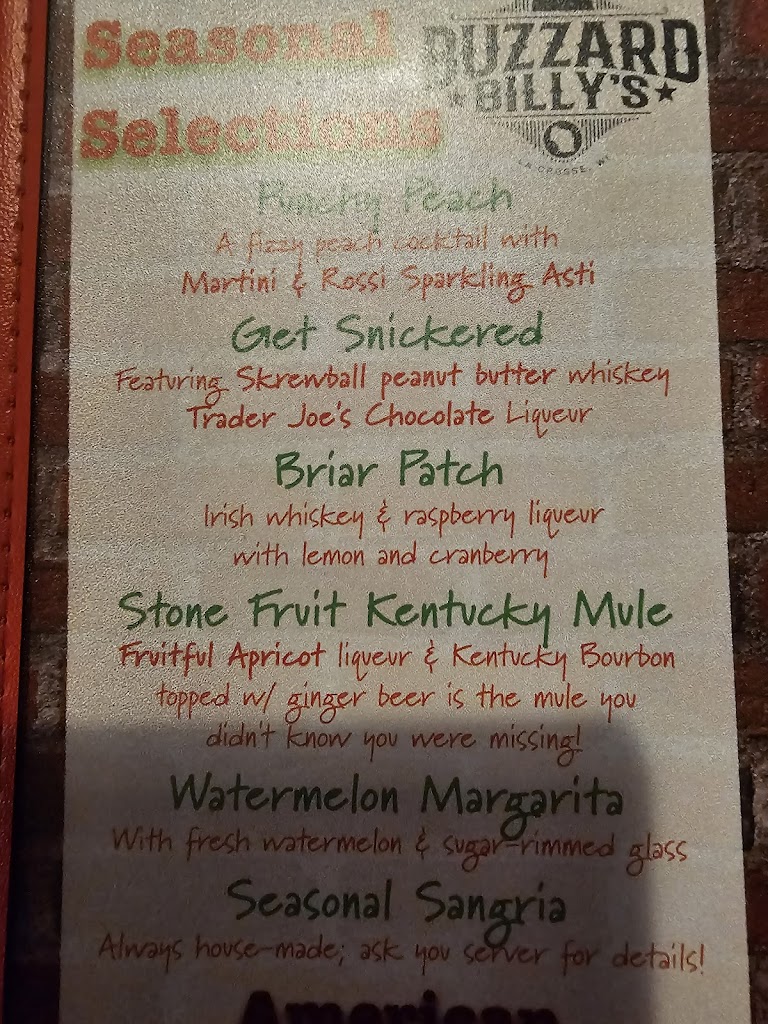 Seasonal
Selections
BUZZARD
BILLY'S
LA CROSSE, WI
Punchy Peach
A fizzy peach cocktail with
Martini & Rossi Sparkling Asti
Get Snickered
Featuring Skrewball peanut butter whiskey
Trader Joe's Chocolate Liqueur
Briar Patch
Irish whiskey & raspberry liqueur
with lemon and cranberry
Stone Fruit Kentucky Mule
Fruitful Apricot liqueur & Kentucky Bourbon
topped w/ ginger beer is the mule you
didn't know you were missing!
Watermelon Margarita
With fresh watermelon & sugar-rimmed glass
Seasonal Sangria
Always house-made; ask you server for details!
American